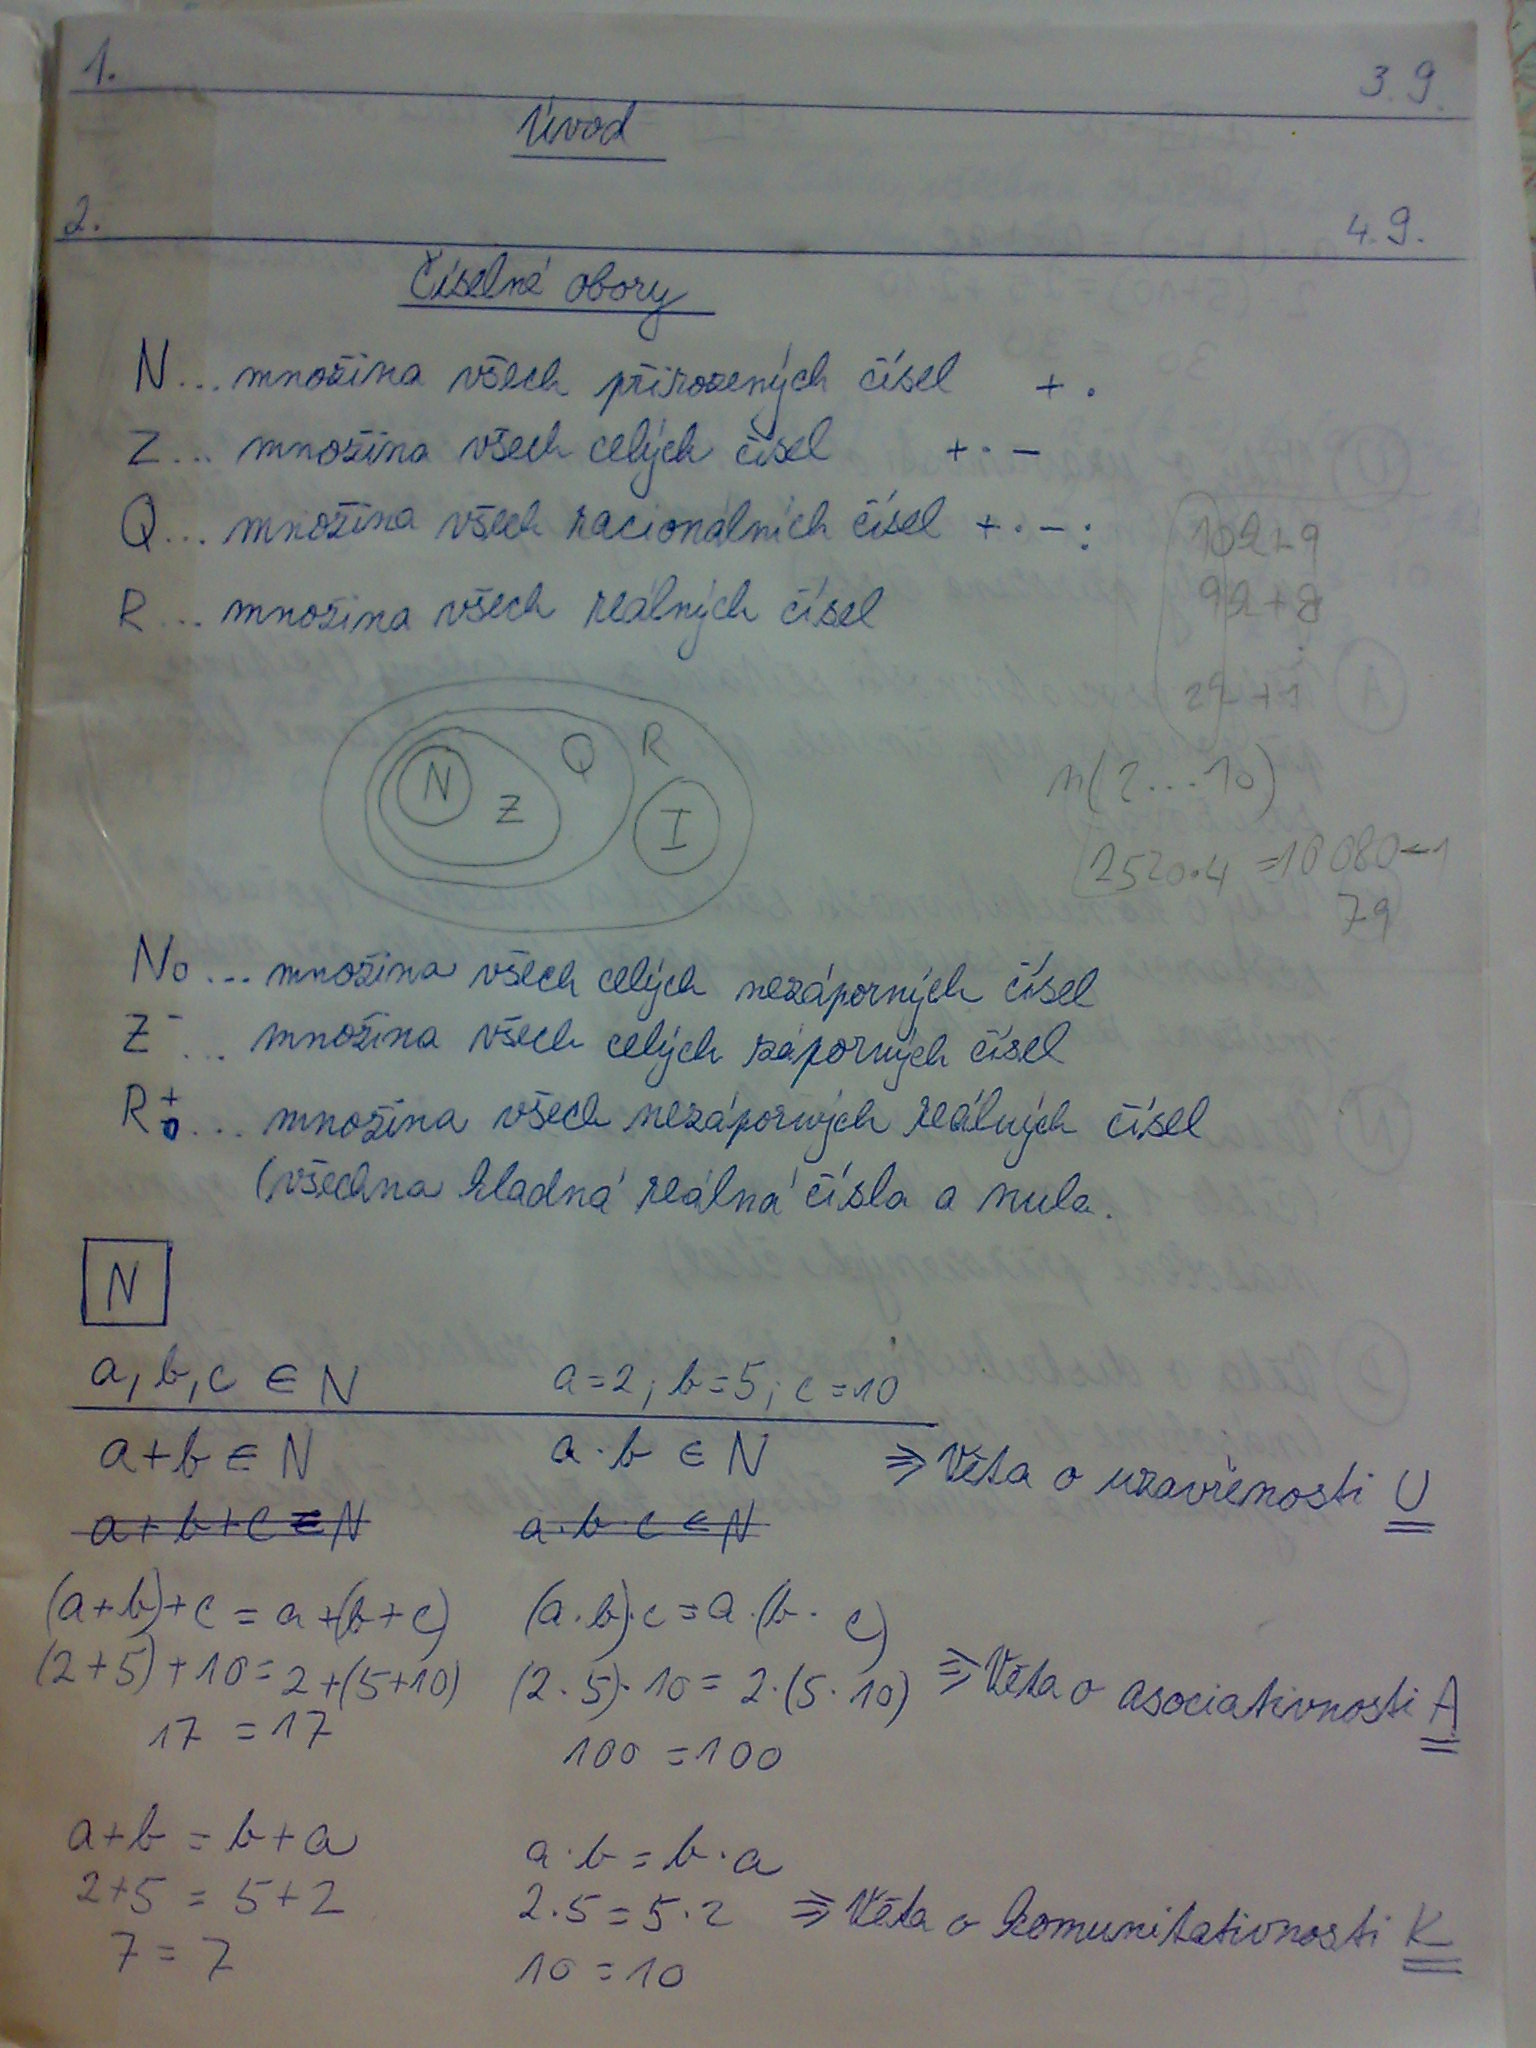 1. 3.9.
Úvod
2. 4.9.
Číselné obory
N... množina všech přirozených čísel + ·
Z... množina všech celých čísel + · −
Q... množina všech racionálních čísel + · − :
R... množina všech reálných čísel
N Z Q R I
n(2...10)
2520·4 = 10080 − 1
79
N₀... množina všech celých nezáporných čísel
Z⁻... množina všech celých záporných čísel
R₀⁺... množina všech nezáporných reálných čísel
(všechna kladná reálná čísla a nula.
N
a, b, c ∈ N a=2; b=5; c=10
a+b ∈ N a·b ∈ N ⇒ Věta o uzavřenosti U
a+b+c ∈ N a·b·c ∈ N
(a+b)+c = a+(b+c) (a·b)·c = a·(b·c)
(2+5)+10 = 2+(5+10) (2·5)·10 = 2·(5·10) ⇒ Věta o asociativnosti A
17 = 17 100 = 100
a+b = b+a a·b = b·a
2+5 = 5+2 2·5 = 5·2 ⇒ Věta o komunitativnosti K
7 = 7 10 = 10